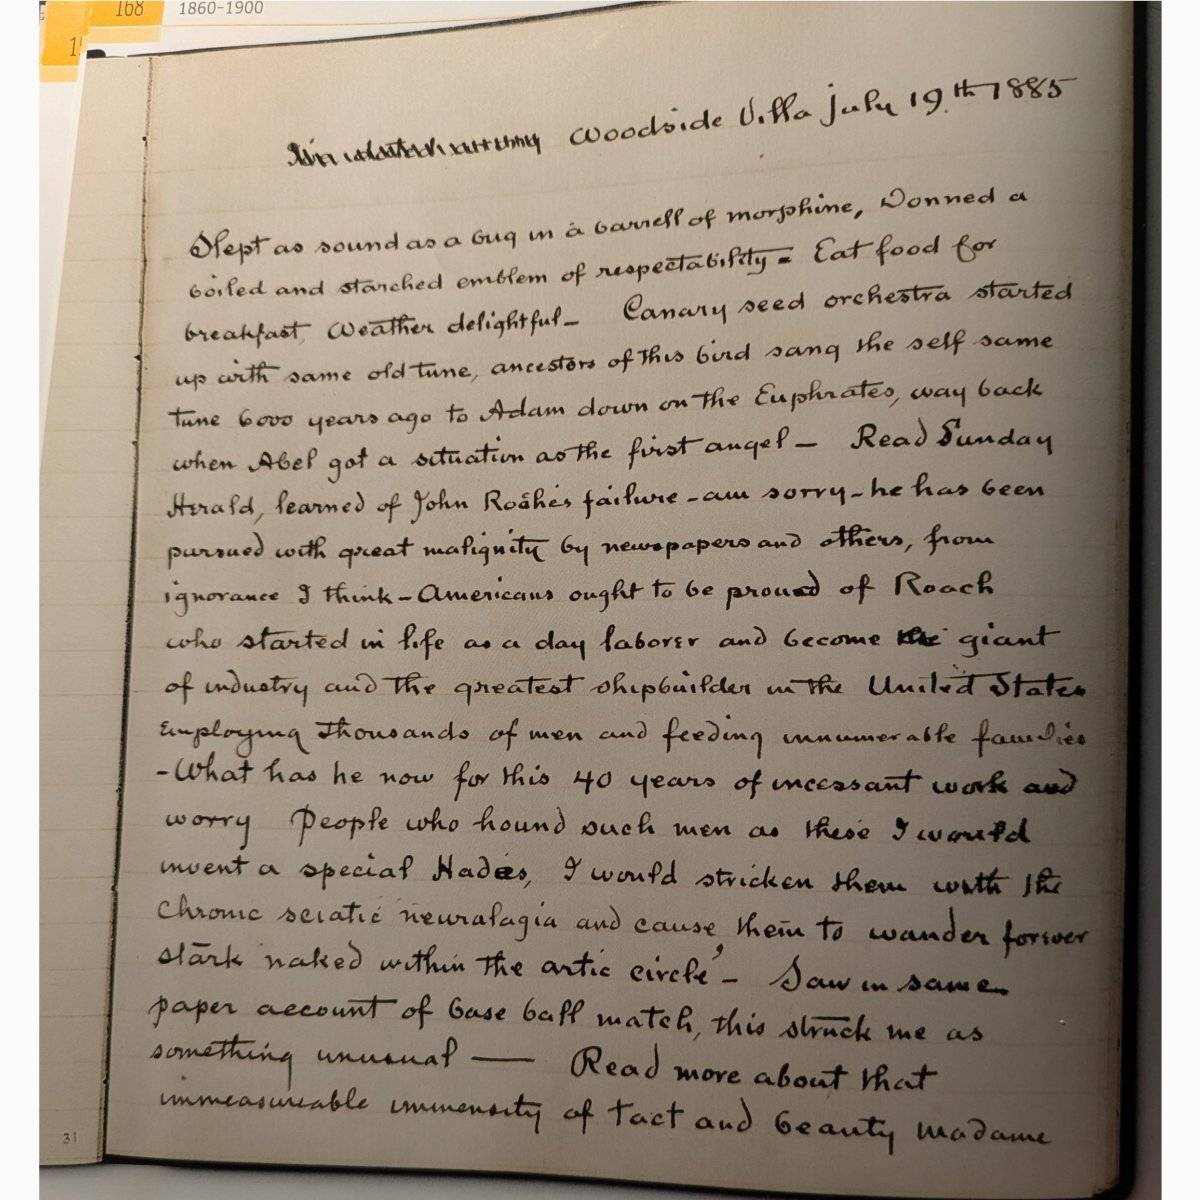 168 1860-1900
Woodside Villa July 19th 1885
Slept as sound as a bug in a barrell of morphine, Donned a
boiled and starched emblem of respectability = Eat food for
breakfast, Weather delightful – Canary seed orchestra started
up with same old tune, ancestors of this bird sang the self same
tune 6000 years ago to Adam down on the Euphrates, way back
when Abel got a situation as the first angel – Read Sunday
Herald, learned of John Roaches failure – am sorry – he has been
pursued with great malignity by newspapers and others, from
ignorance I think – Americans ought to be proud of Roach
who started in life as a day laborer and become the giant
of industry and the greatest shipbuilder in the United States
Employing thousands of men and feeding innumerable families
– What has he now for this 40 years of incessant work and
worry People who hound such men as these I would
invent a special Hades, I would stricken them with the
Chronic sciatic neuralagia and cause them to wander forever
stark naked within the artic circle – Saw in same
paper account of base ball match, this struck me as
something unusual — Read more about that
immeasureable immensity of tact and beauty Madame
31